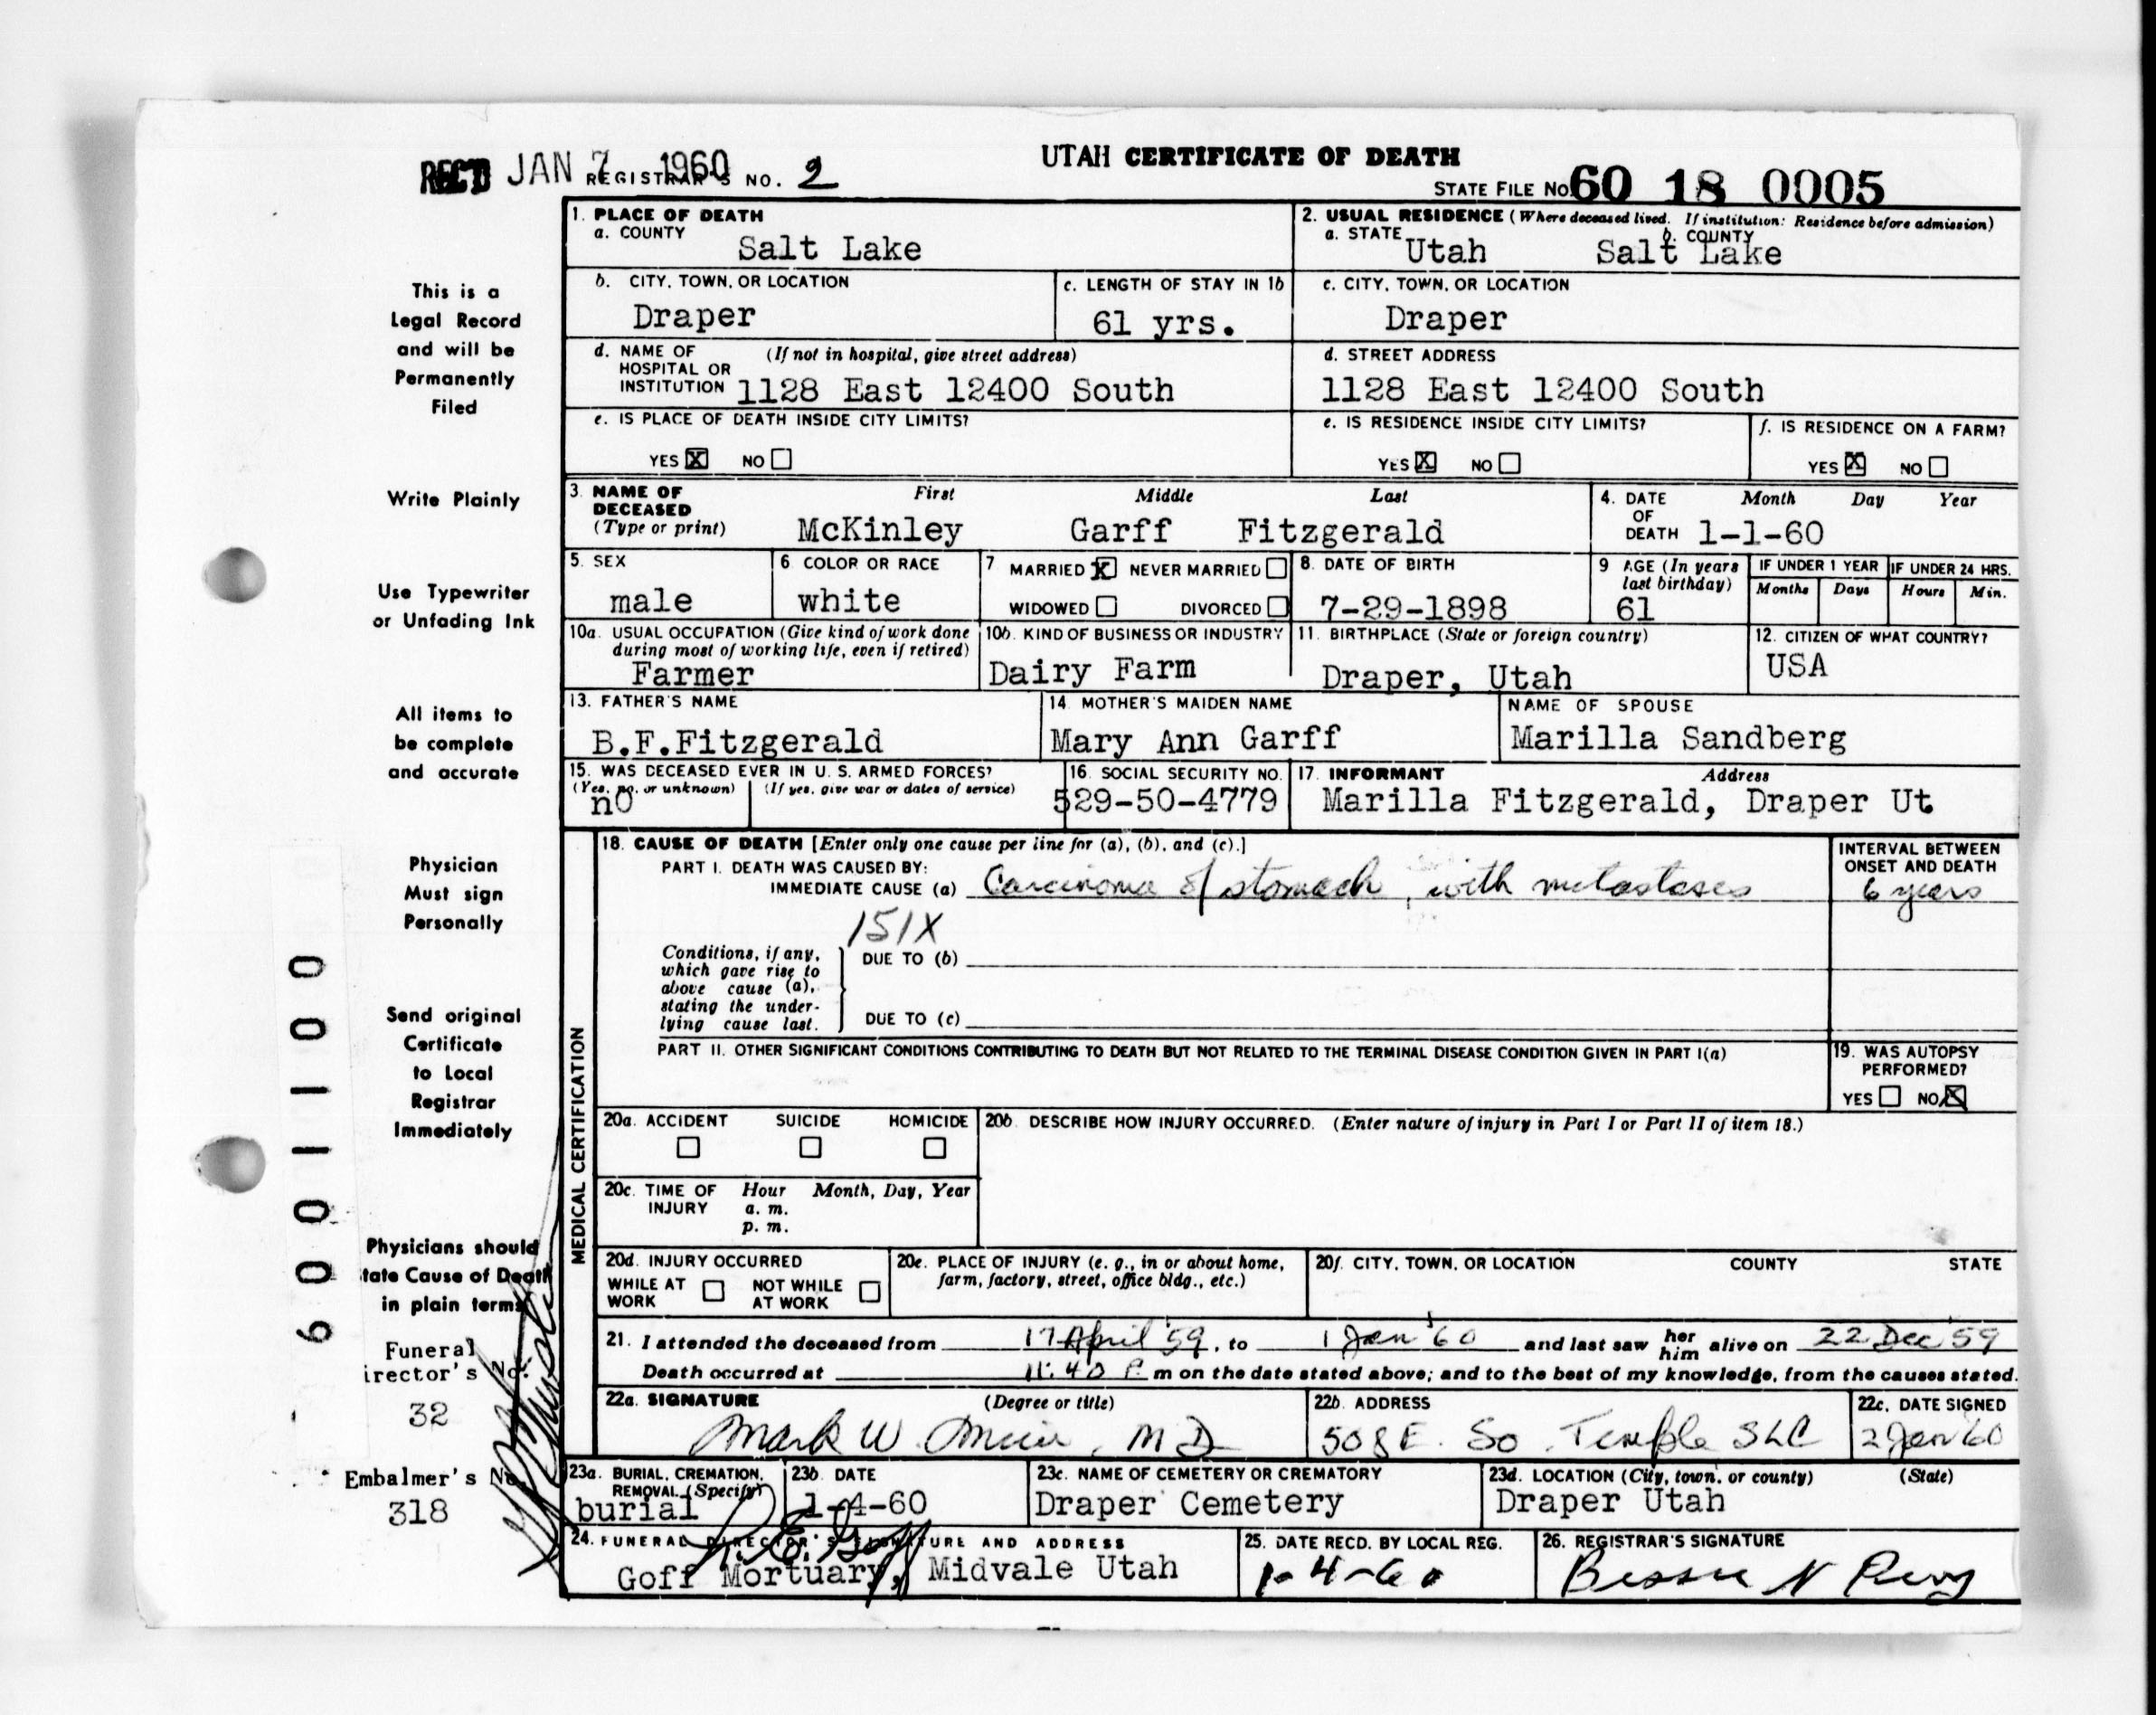 UTAH CERTIFICATE OF DEATH
REC'D JAN 7 1960 REGISTRAR'S NO. 2
STATE FILE NO. 60 18 0005
1. PLACE OF DEATH
a. COUNTY
Salt Lake
2. USUAL RESIDENCE (Where deceased lived. If institution: Residence before admission)
a. STATE b. COUNTY
Utah Salt Lake
b. CITY, TOWN, OR LOCATION
Draper
c. LENGTH OF STAY IN 1b
61 yrs.
c. CITY, TOWN, OR LOCATION
Draper
d. NAME OF (If not in hospital, give street address)
HOSPITAL OR
INSTITUTION 1128 East 12400 South
d. STREET ADDRESS
1128 East 12400 South
e. IS PLACE OF DEATH INSIDE CITY LIMITS?
YES X NO
e. IS RESIDENCE INSIDE CITY LIMITS?
YES X NO
f. IS RESIDENCE ON A FARM?
YES X NO
3. NAME OF First Middle Last
DECEASED
(Type or print) McKinley Garff Fitzgerald
4. DATE Month Day Year
OF
DEATH 1-1-60
5. SEX
male
6 COLOR OR RACE
white
7 MARRIED X NEVER MARRIED
WIDOWED DIVORCED
8. DATE OF BIRTH
7-29-1898
9 AGE (In years
last birthday)
61
IF UNDER 1 YEAR IF UNDER 24 HRS.
Months Days Hours Min.
10a. USUAL OCCUPATION (Give kind of work done
during most of working life, even if retired)
Farmer
10b. KIND OF BUSINESS OR INDUSTRY
Dairy Farm
11. BIRTHPLACE (State or foreign country)
Draper, Utah
12. CITIZEN OF WHAT COUNTRY?
USA
13. FATHER'S NAME
B.F.Fitzgerald
14. MOTHER'S MAIDEN NAME
Mary Ann Garff
NAME OF SPOUSE
Marilla Sandberg
15. WAS DECEASED EVER IN U. S. ARMED FORCES?
(Yes, no, or unknown) (If yes, give war or dates of service)
no
16. SOCIAL SECURITY NO.
529-50-4779
17. INFORMANT Address
Marilla Fitzgerald, Draper Ut
MEDICAL CERTIFICATION
18. CAUSE OF DEATH [Enter only one cause per line for (a), (b), and (c).]
PART I. DEATH WAS CAUSED BY:
IMMEDIATE CAUSE (a) Carcinoma of stomach, with metastases
INTERVAL BETWEEN
ONSET AND DEATH
6 years
151X
Conditions, if any,
which gave rise to
above cause (a),
stating the under-
lying cause last.
DUE TO (b)
DUE TO (c)
PART II. OTHER SIGNIFICANT CONDITIONS CONTRIBUTING TO DEATH BUT NOT RELATED TO THE TERMINAL DISEASE CONDITION GIVEN IN PART I(a)
19. WAS AUTOPSY
PERFORMED?
YES NO X
20a. ACCIDENT SUICIDE HOMICIDE
20b. DESCRIBE HOW INJURY OCCURRED. (Enter nature of injury in Part I or Part II of item 18.)
20c. TIME OF Hour Month, Day, Year
INJURY a. m.
p. m.
20d. INJURY OCCURRED
WHILE AT NOT WHILE
WORK AT WORK
20e. PLACE OF INJURY (e. g., in or about home,
farm, factory, street, office bldg., etc.)
20f. CITY, TOWN, OR LOCATION COUNTY STATE
21. I attended the deceased from 17 April '59, to 1 Jan '60 and last saw her him alive on 22 Dec 59
Death occurred at 11:40 P. m on the date stated above; and to the best of my knowledge, from the causes stated.
22a. SIGNATURE (Degree or title)
Mark W. Muir, MD
22b. ADDRESS
508 E. So. Temple SLC
22c. DATE SIGNED
2 Jan 60
23a. BURIAL, CREMATION,
REMOVAL (Specify)
burial
23b. DATE
1-4-60
23c. NAME OF CEMETERY OR CREMATORY
Draper Cemetery
23d. LOCATION (City, town, or county) (State)
Draper Utah
24. FUNERAL DIRECTOR'S SIGNATURE AND ADDRESS
R. E. Goff
Goff Mortuary, Midvale Utah
25. DATE RECD. BY LOCAL REG.
1-4-60
26. REGISTRAR'S SIGNATURE
Bessie N
This is a
Legal Record
and will be
Permanently
Filed
Write Plainly
Use Typewriter
or Unfading Ink
All items to
be complete
and accurate
Physician
Must sign
Personally
Send original
Certificate
to Local
Registrar
Immediately
Physicians should
tate Cause of Death
in plain terms
Funeral
irector's No.
32
Embalmer's No.
318
6001100